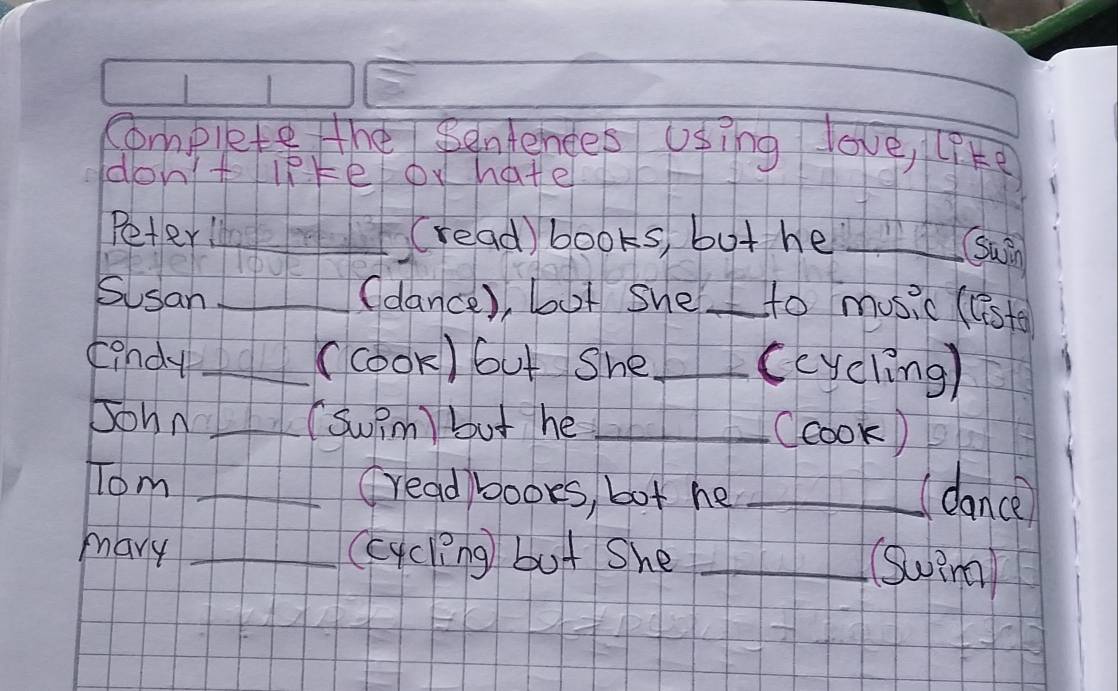 Complete the Sentences Using love, like
don't like or hate
Peter ________ (read) books, but he ______ (swim
Susan ______ (dance), but she __ to music (liste
Cindy _____ (cook) but she ____ (cycling)
John ____ (swim) but he ________ (cook)
Tom ______ (read) books, but he ________ (dance)
Mary _______ (cycling) but She ________ (Swim)